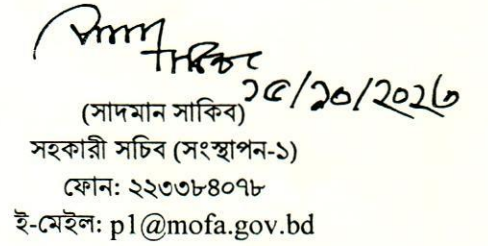 ১৫/১০/২০২৩
(সাদমান সাকিব)
সহকারী সচিব (সংস্থাপন-১)
ফোন: ২২৩৩৮৪০৭৮
ই-মেইল: p1@mofa.gov.bd